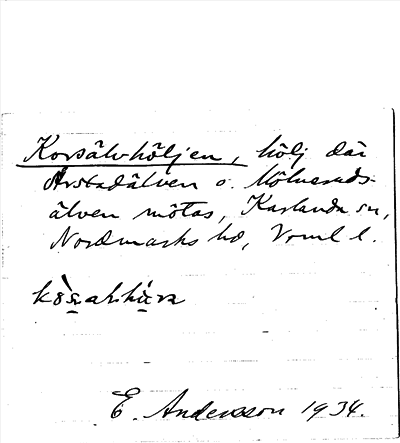 Korsälvhöljen, hölj där
Årstadälven o. Mölnerads-
älven mötas, Karlanda sn,
Nordmarks hd, Vrml l.
E. Andersson 1934.